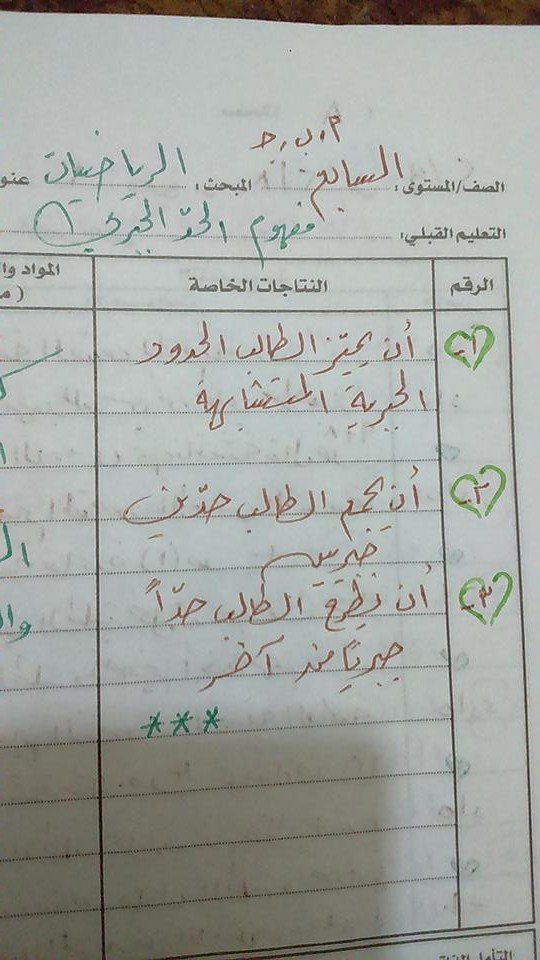 أ، ب، ج
الصف/المستوى: السابع المبحث: الرياضيات عنو
التعليم القبلي: مفهوم الحدّ الجبري
الرقم النتاجات الخاصة المواد وا
١- أن يميّز الطالب الحدود
الجبرية المتشابهة
٢- أن يجمع الطالب حدّين
جبريين
٣- أن يطرح الطالب حدّاً
جبرياً من آخر
***